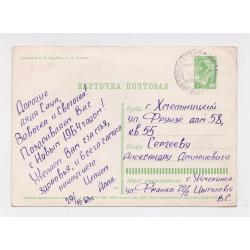 КАРТОЧКА ПОЧТОВАЯ
Дорогие
дядя Саша,
Вовочка и Светочка!
Поздравляем Вас с
Новым 1964 годом!
Желаем Вам счастья,
здоровья и всего самого
наилучшего.
Целуем
Алла.
Куда г. Хмельницкий
ул. Фрунзе дом 58,
кв 55
Кому Сергееву
Александру Дмитриевичу
г. Жмеринка
ул. Франко 72/2
В.С.